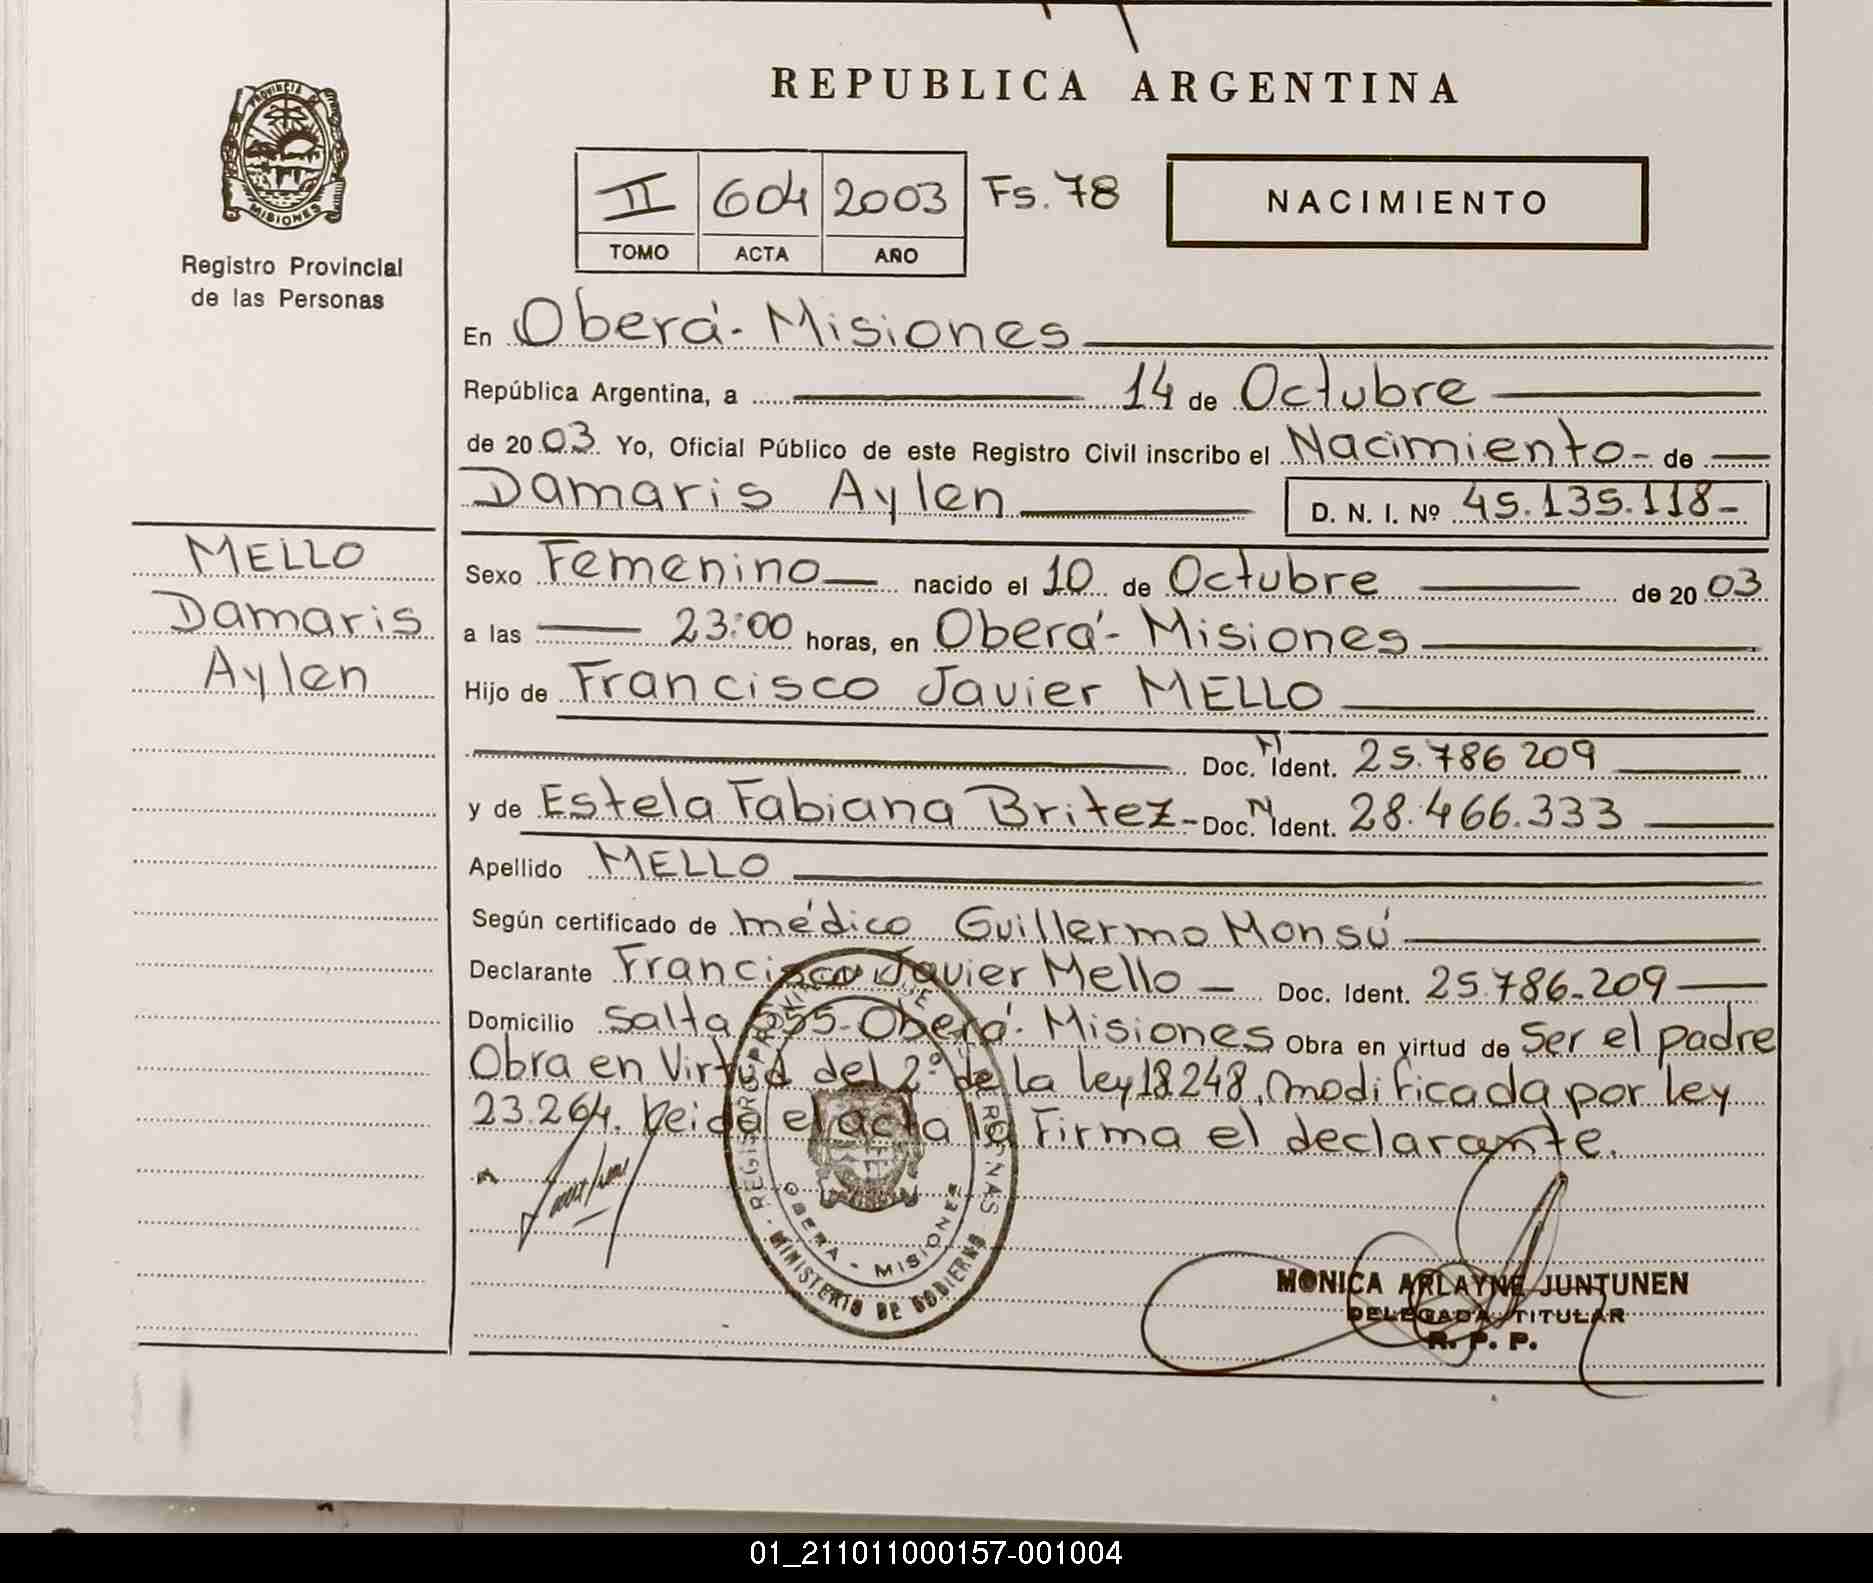 REPUBLICA ARGENTINA
PROVINCIA DE
MISIONES
Registro Provincial
de las Personas
II 604 2003 Fs. 78
TOMO ACTA AÑO
NACIMIENTO
En Oberá - Misiones
República Argentina, a 14 de Octubre
de 2003 Yo, Oficial Público de este Registro Civil inscribo el Nacimiento - de
Damaris Aylen D. N. I. Nº 45.135.118-
MELLO
Damaris
Aylen
Sexo Femenino nacido el 10 de Octubre de 2003
a las 23:00 horas, en Oberá - Misiones
Hijo de Francisco Javier MELLO
Doc. N Ident. 25.786 209
y de Estela Fabiana Britez - Doc. N Ident. 28.466.333
Apellido MELLO
Según certificado de médico Guillermo Monsú
Declarante Francisco Javier Mello - Doc. Ident. 25.786.209
Domicilio Salta 555 - Oberá - Misiones Obra en virtud de Ser el padre
Obra en Virtud del 2º de la ley 18.248, modificada por ley
23.264. Leida el acta la Firma el declarante.
REGISTRO PROVINCIAL DE LAS PERSONAS
OBERA - MISIONES
MINISTERIO DE GOBIERNO
MONICA ARLAYNE JUNTUNEN
DELEGADA TITULAR
R. P. P.
01_211011000157-001004